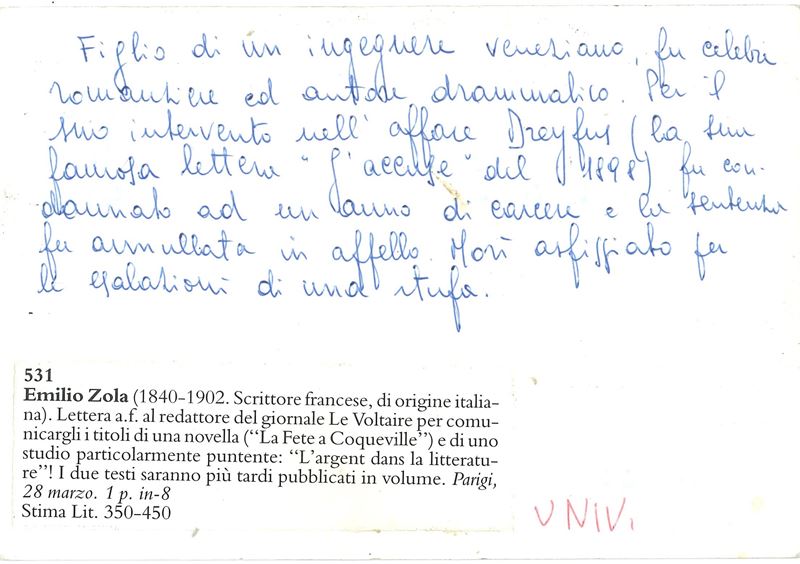 Figlio di un ingegnere veneziano, fu celebre
romanziere ed autore drammatico. Per il
suo intervento nell'affare Dreyfus (la sua
famosa lettera "J'accuse" del 1898) fu con-
dannato ad un anno di carcere e la sentenza
fu annullata in appello. Morì asfissiato per
le esalazioni di una stufa.
531
Emilio Zola (1840-1902. Scrittore francese, di origine italia-
na). Lettera a.f. al redattore del giornale Le Voltaire per comu-
nicargli i titoli di una novella ("La Fete a Coqueville") e di uno
studio particolarmente puntente: "L'argent dans la litteratu-
re"! I due testi saranno più tardi pubblicati in volume. Parigi,
28 marzo. 1 p. in-8
Stima Lit. 350-450
UNIV.